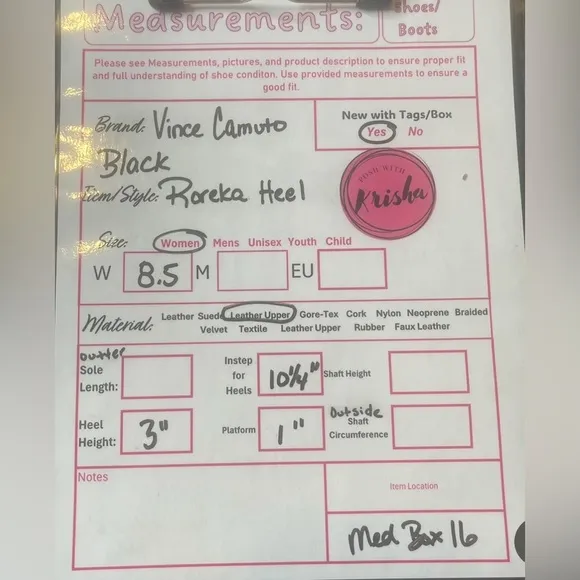 Measurements:
Shoes/
Boots
Please see Measurements, pictures, and product description to ensure proper fit
and full understanding of shoe conditon. Use provided measurements to ensure a
good fit.
Brand: Vince Camuto
New with Tags/Box
Yes No
Black
Item/Style: Roreka Heel
POSH WITH
Krisha
Size: Women Mens Unisex Youth Child
W 8.5 M EU
Material: Leather Suede Leather Upper Gore-Tex Cork Nylon Neoprene Braided
Velvet Textile Leather Upper Rubber Faux Leather
outter
Sole
Length:
Instep
for
Heels
10 1/4"
Shaft Height
Heel
Height:
3"
Platform
1"
Outside
Shaft
Circumference
Notes
Item Location
Med Box 16